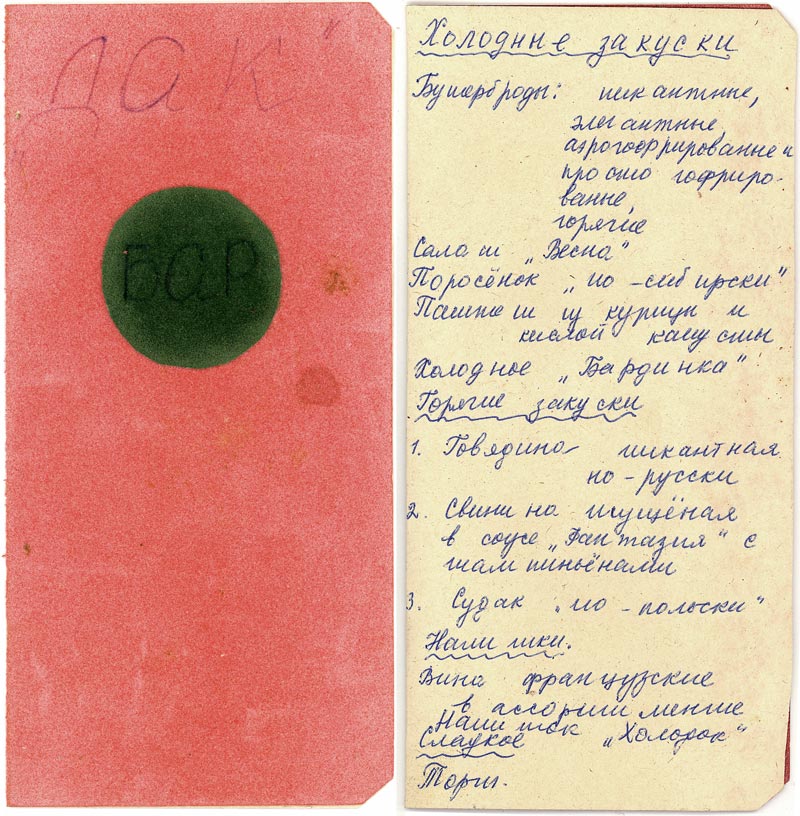 "ДАК"
БАР
Холодные закуски
Бутерброды: пикантные,
элегантные,
аэрогофрированные и
просто гофриро-
ванные,
горячие
Салат „Весна"
Поросёнок „по-сибирски"
Паштет из курицы и
кислой капусты
Холодное „Бардинка"
Горячие закуски
1. Говядина пикантная
по-русски
2. Свинина тушёная
в соусе „Фантазия" с
шампиньёнами
3. Судак „по-польски"
Напитки.
Вина французские
в ассортименте
Напиток „Холодок"
Сладкое
Торты.